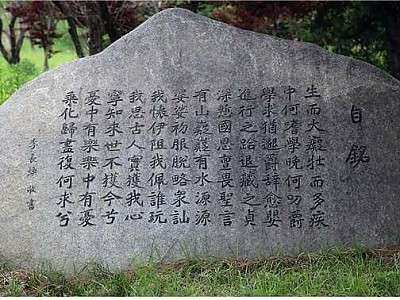 自銘
生而大癡壯而多疾
中何嗜學晚何叨爵
學求猶邈爵辭愈嬰
進行之跲退藏之貞
深慙國恩亶畏聖言
有山嶷嶷有水源源
婆娑初服脫略衆訕
我懷伊阻我佩誰玩
我思古人實獲我心
寧知來世不獲今兮
憂中有樂樂中有憂
乘化歸盡復何求兮
李長 書